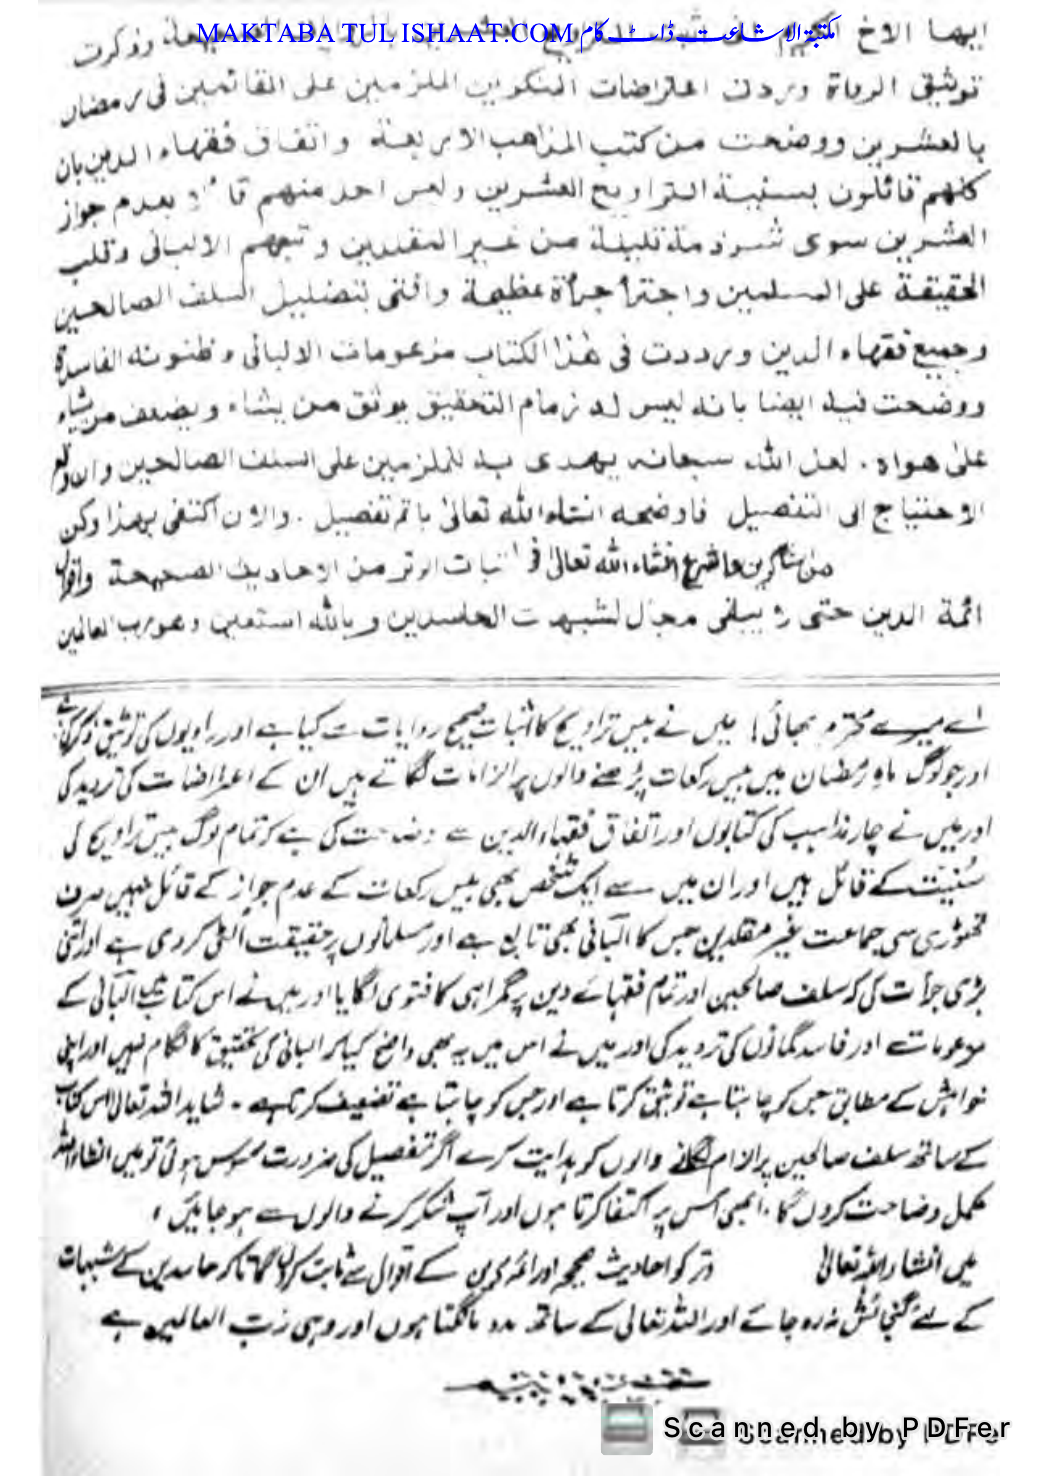 MAKTABA TUL ISHAAT.COM مكتبة الاشاعت ڈاٹ کام
ايها الاخ وذكرت
توثيق الرواة ورددت اعتراضات المنكرين الملزمين على القائمين فى رمضان
بالعشرين ووضحت من كتب المذاهب الاربعة واتفاق فقهاء الدين بان
كلهم قائلون بسنية التراويح العشرين وليس احد منهم بعدم جواز
العشرين سوى شرذمة قليلة من غير المقلدين وتبعهم الالبانى وقلب
الحقيقة على المسلمين واجترأ جرأة عظيمة وافتى بتضليل السلف الصالحين
وجميع فقهاء الدين ورددت فى هذا الكتاب مزعومات الالبانى وظنونه الفاسدة
ووضحت فيه ايضا بانه ليس له زمام التحقيق يوثق من يشاء ويضعف من يشاء
على هواه . لعل الله سبحانه يهدى به للملزمين على السلف الصالحين وان وقع
الاحتياج الى التفصيل فاوضحه انشاء الله تعالىٰ باتم تفصيل . والآن اكتفى بهذا وكن
من انشاء الله تعالىٰ فى اثبات الوتر من الاحاديث الصحيحة واقوال
ائمة الدين حتى لا يبقى مجال لشبهات الحاسدين وبالله استعين وهو رب العالمين
اے میرے محترم بھائی! میں نے بیس تراویح کا اثبات صحیح روایات سے کیا ہے اور راویوں کی توثیق ذکر کی ہے
اور جو لوگ ماہِ رمضان میں بیس رکعات پڑھنے والوں پر الزامات لگاتے ہیں ان کے اعتراضات کی تردید کی
اور میں نے چار مذاہب کی کتابوں اور اتفاق فقہاء الدین سے وضاحت کی ہے کہ تمام لوگ بیس تراویح کی
سُنیت کے قائل ہیں اور ان میں سے ایک شخص بھی بیس رکعات کے عدم جواز کے قائل نہیں صرف
تھوڑی سی جماعت غیر مقلدین جس کا البانی بھی تابع ہے اور مسلمانوں پر حقیقت الٹی کر دی ہے اور اتنی
بڑی جرأت کی کہ سلف صالحین اور تمام فقہائے دین پر گمراہی کا فتوی لگایا اور میں نے اس کتاب میں البانی کے
مزعومات اور فاسد گمانوں کی تردید کی اور میں نے اس میں یہ بھی واضح کیا کہ البانی کی تحقیق کا لگام نہیں اور اپنی
خواہش کے مطابق جس کو چاہتا ہے توثیق کرتا ہے اور جس کو چاہتا ہے تضعیف کرتا ہے ۔ شاید اللہ تعالیٰ اس کتاب
کے ساتھ سلف صالحین پر الزام لگانے والوں کو ہدایت کرے اگر تفصیل کی ضرورت محسوس ہوئی تو میں انشاء اللہ
مکمل وضاحت کروں گا ۔ ابھی اس پر اکتفا کرتا ہوں اور آپ شکر کرنے والوں سے ہو جائیں ،
میں انشاء اللہ تعالیٰ وتر کو احادیث صحیحہ اور ائمہ دین کے اقوال سے ثابت کروں گا تاکہ حاسدین کے شبہات
کے لئے گنجائش نہ رہ جائے اور اللہ تعالیٰ کے ساتھ مدد مانگتا ہوں اور وہی رب العالمین ہے
Scanned by PDFer